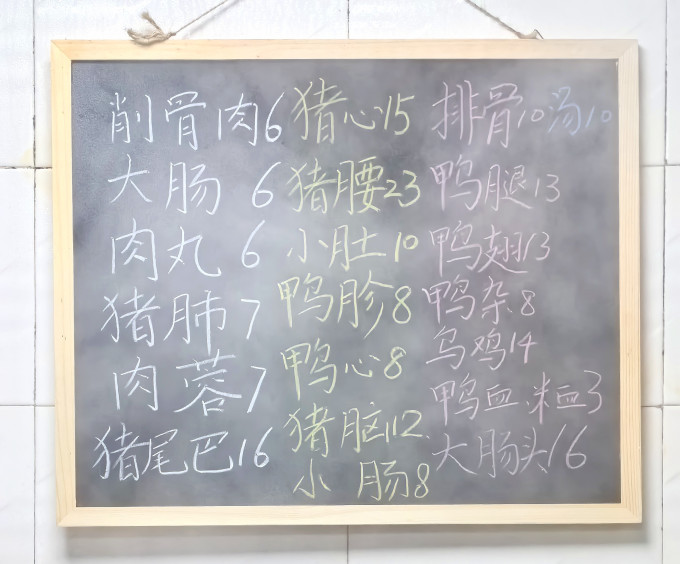 削骨肉6
大肠 6
肉丸 6
猪肺7
肉蓉7
猪尾巴16
猪心15
猪腰23
小肚10
鸭胗8
鸭心8
猪脑12
小肠8
排骨10汤10
鸭腿13
鸭翅13
鸭杂8
乌鸡14
鸭血、米血3
大肠头16